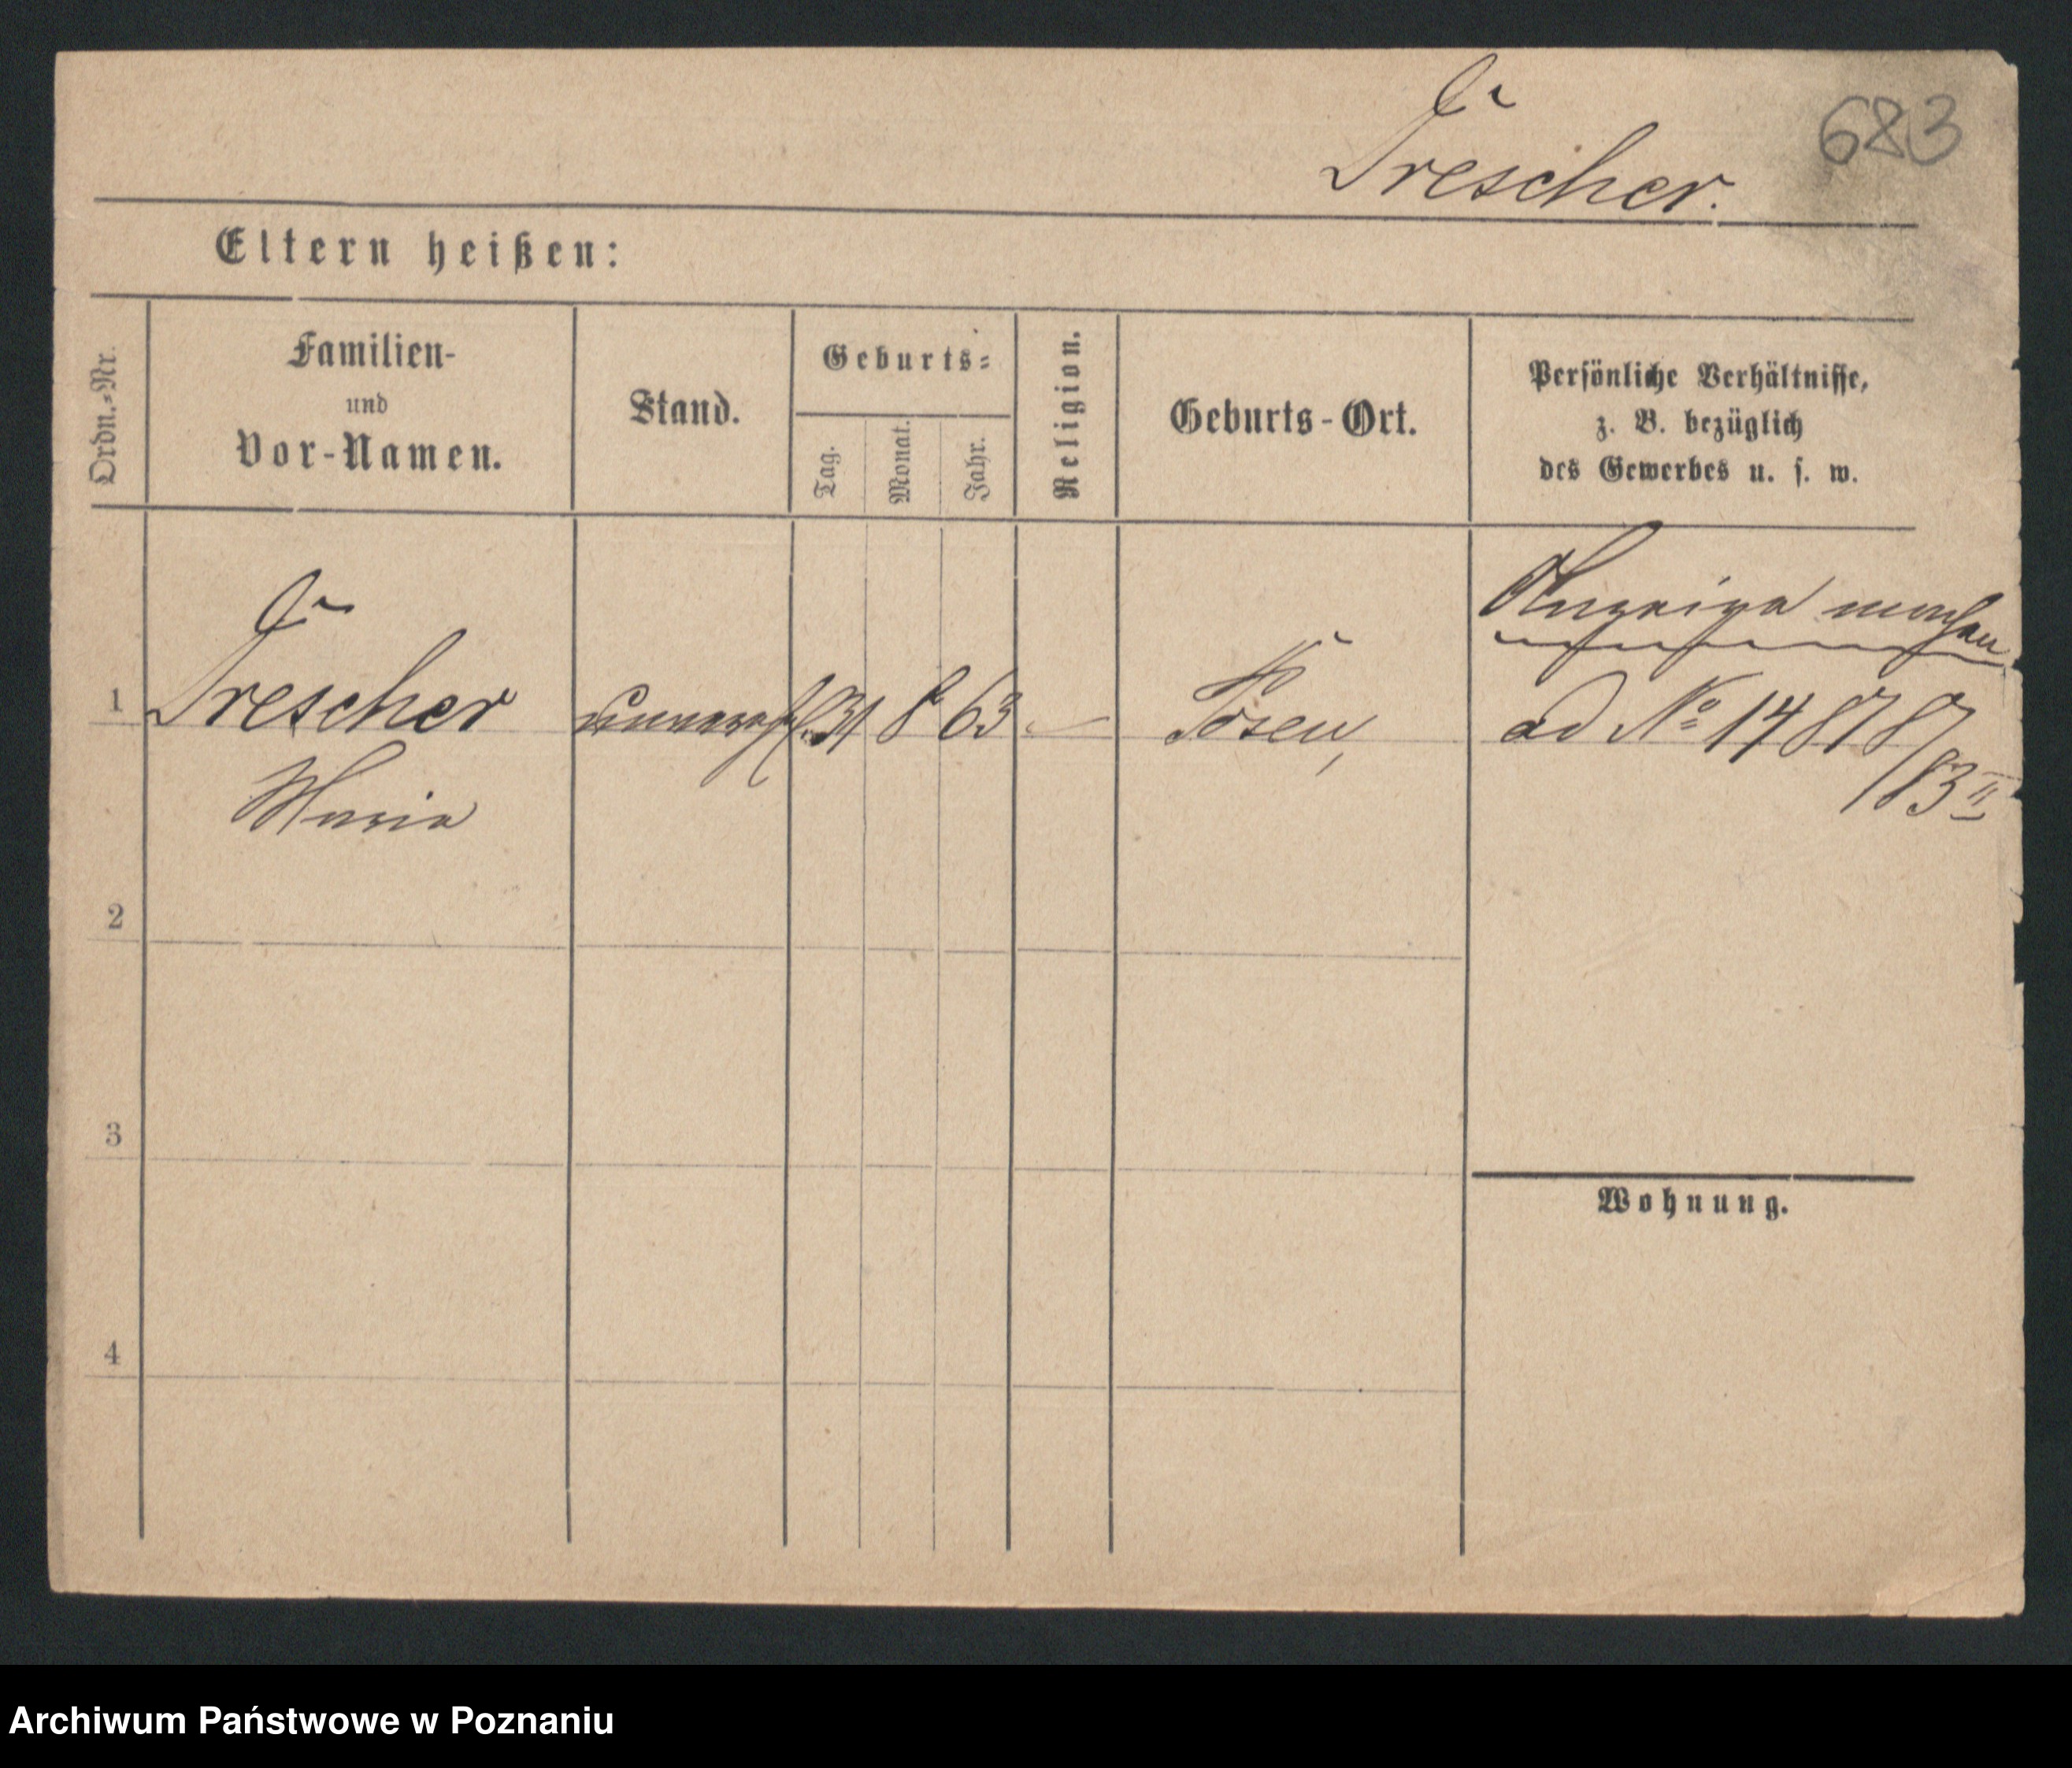 683
Trescher.
Eltern heißen:
Ordn.-Nr.
Familien-
und
Vor-Namen.
Stand.
Geburts-
Tag.
Monat.
Jahr.
Religion.
Geburts-Ort.
Persönliche Verhältnisse,
z. B. bezüglich
des Gewerbes u. s. w.
Anzeige machen
1 Trescher unvereh. 31 8 63 — Posen, ad No 14878
Maria
/83 II
2
3
Wohnung.
4
Archiwum Państwowe w Poznaniu